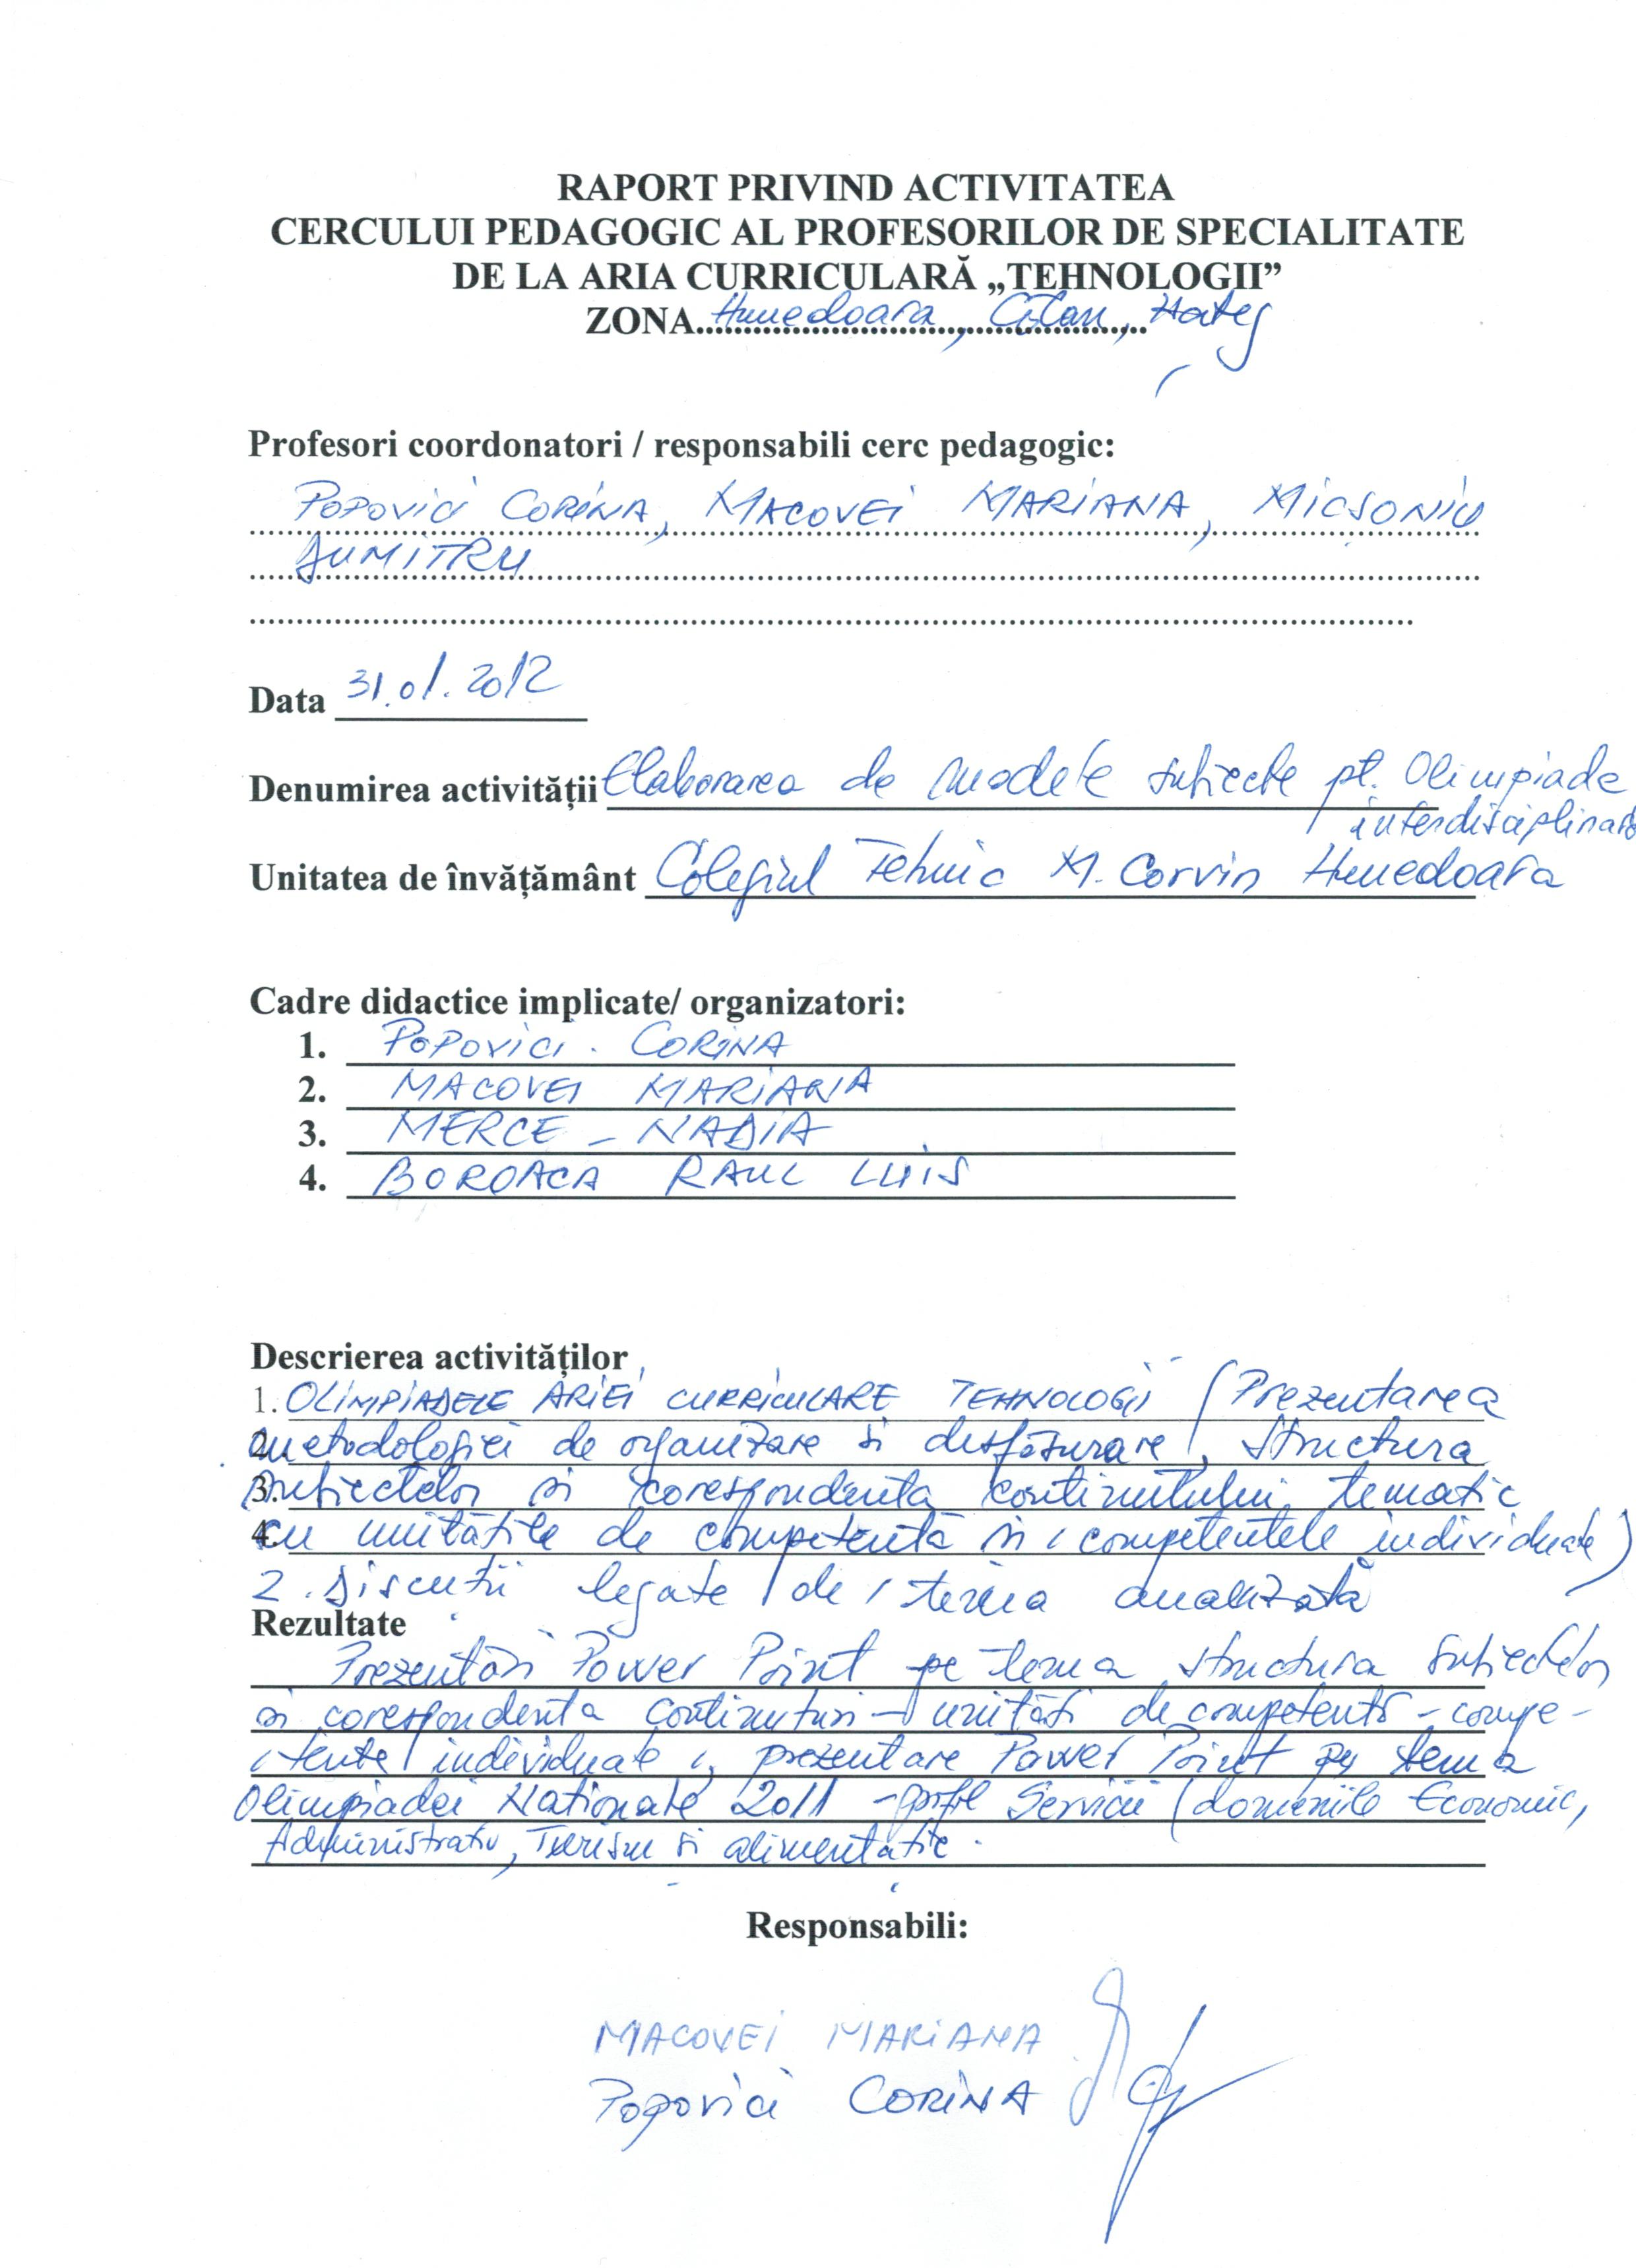 RAPORT PRIVIND ACTIVITATEA
CERCULUI PEDAGOGIC AL PROFESORILOR DE SPECIALITATE
DE LA ARIA CURRICULARĂ „TEHNOLOGII”
ZONA Hunedoara, Călan, Hațeg
Profesori coordonatori / responsabili cerc pedagogic:
POPOVICI CORINA, MACOVEI MARIANA, MICSONIU
DUMITRU
Data 31.01.2012
Denumirea activității Elaborarea de modele subiecte pt. Olimpiade
interdisciplinare
Unitatea de învățământ Colegiul Tehnic M. Corvin Hunedoara
Cadre didactice implicate/ organizatori:
1. POPOVICI CORINA
2. MACOVEI MARIANA
3. MERCE - NADIA
4. BOROACA RAUL LUIS
Descrierea activităților
1. OLIMPIADELE ARIEI CURRICULARE TEHNOLOGII (Prezentarea
2. metodologiei de organizare și desfășurare, structura
3. subiectelor și corespondența conținutului tematic
4. cu unitățile de competență și competențele individuale)
2. Discuții legate de tema analizată
Rezultate
Prezentări Power Point pe tema structura subiectelor
și corespondența conținuturi - unități de competență - compe-
tențe individuale, prezentare Power Point pe tema
Olimpiadei Naționale 2011 - profil Servicii (domeniile Economic,
Administrativ, Turism și alimentație.
Responsabili:
MACOVEI MARIANA
Popovici CORINA